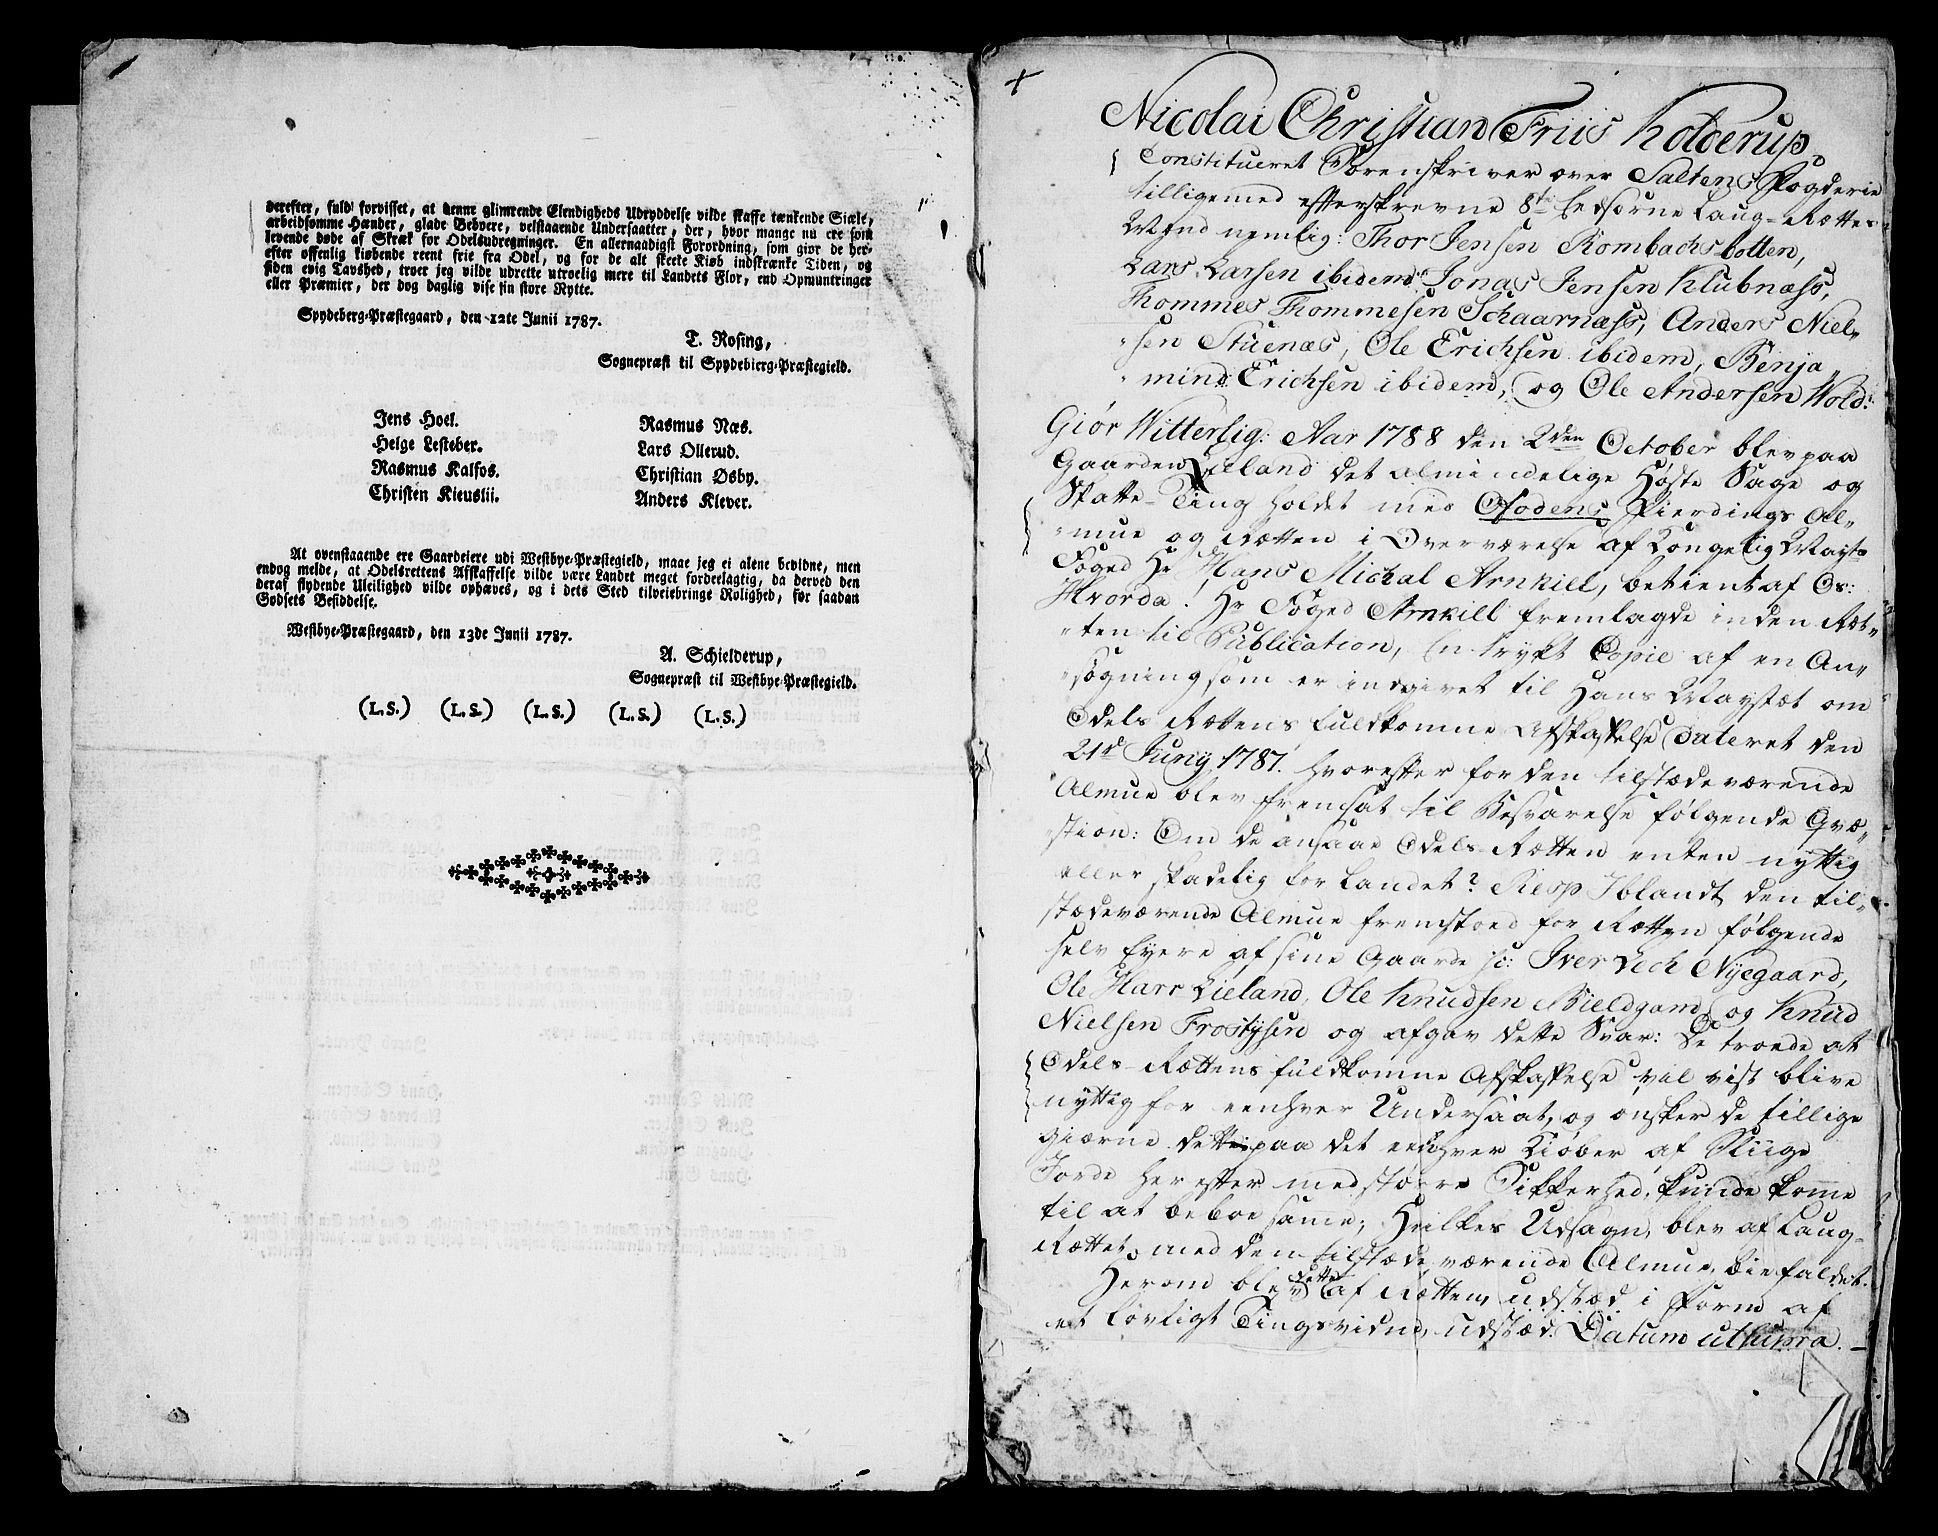 derefter, fuld forvisset, at denne glimrende Elendigheds Udryddelse vilde skaffe tænkende Siæle,
arbeidsomme Hænder, glade Beboere, velstaaende Undersaatter, der, hvor mange nu ere som
levende døde af Skræk for Odelsudregninger. En allernaadigst Forordning, som giør de her-
efter offenlig kiøbende reent frie fra Odel, og for de alt skeete Kiøb indskrænke Tiden, og
siden evig Taushed, troer jeg vilde udrette utroelig mere til Landets Flor, end Opmuntringer
eller Præmier, der dog daglig vise sin store Nytte.
Spydeberg-Præstegaard, den 12te Junii 1787.
T. Rosing,
Sognepræst til Spydebierg-Præstegield.
Jens Hoel.
Helge Lesteber.
Rasmus Kalfos.
Christen Kieuslii.
Rasmus Næs.
Lars Ollerud.
Christian Osby.
Anders Klever.
At ovenstaaende ere Gaardeiere udi Westbye-Præstegield, maae jeg ei alene bevidne, men
endog melde, at Odelsrettens Afskaffelse vilde være Landet meget fordeelagtig, da derved den
deraf flydende Uleilighed vilde ophæves, og i dets Sted tilveiebringe Rolighed, før saadan
Godsets Besiddelse.
Westbye-Præstegaard, den 13de Junii 1787.
A. Schielderup,
Sognepræst til Westbye-Præstegield.
(L.S.) (L.S.) (L.S.) (L.S.) (L.S.)
Nicolai Christian Friis Holderup
Constitueret Sorenskriver over Saltens Fogderie
tilligemed efterskrevne 8te Eedsorne Laug-Rættes-
Mænd nemlig: Thor Jensen Rombachsbotten,
Lars Larsen ibidem, Jonas Jensen Klubnæss,
Thommes Thommesen Schaarnæss, Anders Niel-
sen Stuenæs, Ole Erichsen ibidem, Benja-
min Erichsen ibidem, og Ole Andersen Wold:
Giør Witterlig: Aar 1788 den 2den October blev paa
Gaarden Lieland det almindelige Høste Sage og
Skatte-Ting holdet med Ofodens Fierdings Al-
mue og Rætten i Overværelse af Kongelig Mayts
Foged Hr Hans Michal Arnkill, betient af Os:
Hvorda! Hr Foged Arnkill fremlagde inden Ræt-
ten til Publication, En trykt Copie af en An-
søgning som er indgivet til Hans Mayestæt om
Odels Rættens fuldkomne Afskaffelse dateret den
21d Juny 1787. hvorefter for den tilstædeværende
Almue blev fremsat til Besvarelse følgende Qvæ-
stion: Om de ansaae Odels-Rætten enten nyttig
eller skadelig for Landet? Resp Iblandt den til-
stædeværende Almue fremstoed for Rætten følgende
selv Eyere af sine Gaarde sc: Iver Lech Nyegaard,
Ole Harr Lieland, Ole Knudsen Bieldgam og Knud
Nielsen Frostysen og afgav dette Svar: De troede at
Odels-Rættens fuldkomne Afskaffelse vil vist blive
nyttig for eenhver Undersaat, og ønsker de tillige
gierne dette paa det eenhver Kiøber af Sliige
Jorde her efter med større Sikkerhed, kunde komme
til at beboe samme; Hvilkes Udsagn, blev af Laug-
Rættet, med den tilstædeværende Almue, biefaldet.
Herom blev dette af Rætten, udstæd i Form af
et lovligt Tingsvidne, udstæd. Datum ut supra.